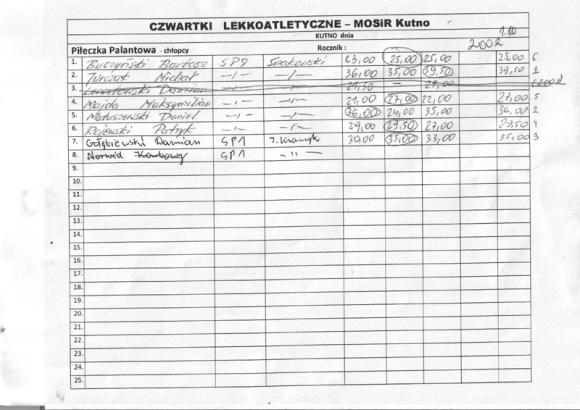 CZWARTKI LEKKOATLETYCZNE – MOSiR Kutno
KUTNO dnia 1.10
Piłeczka Palantowa - chłopcy Rocznik : 2002
1. Buczyński Bartosz SP9 23,00 25,00 25,00 25,00 6
2. Michał -//- -//- 36,00 35,00 39,50 39,50 1
3. Damian 21,50 29,00
4. Majda Maksymilian -//- -//- 21,00 27,00 22,00 27,00 5
5. Matuszewski Daniel -//- -//- 36,00 24,00 35,00 36,00 2
6. Rojewski Patryk -//- -//- 29,00 29,50 27,00 29,50 4
7. Gołębiewski Damian SP1 30,00 35,00 33,00 35,00 3
8. Norwid SP1 -"-
9.
10.
11.
12.
13.
14.
15.
16.
17.
18.
19.
20.
21.
22.
23.
24.
25.